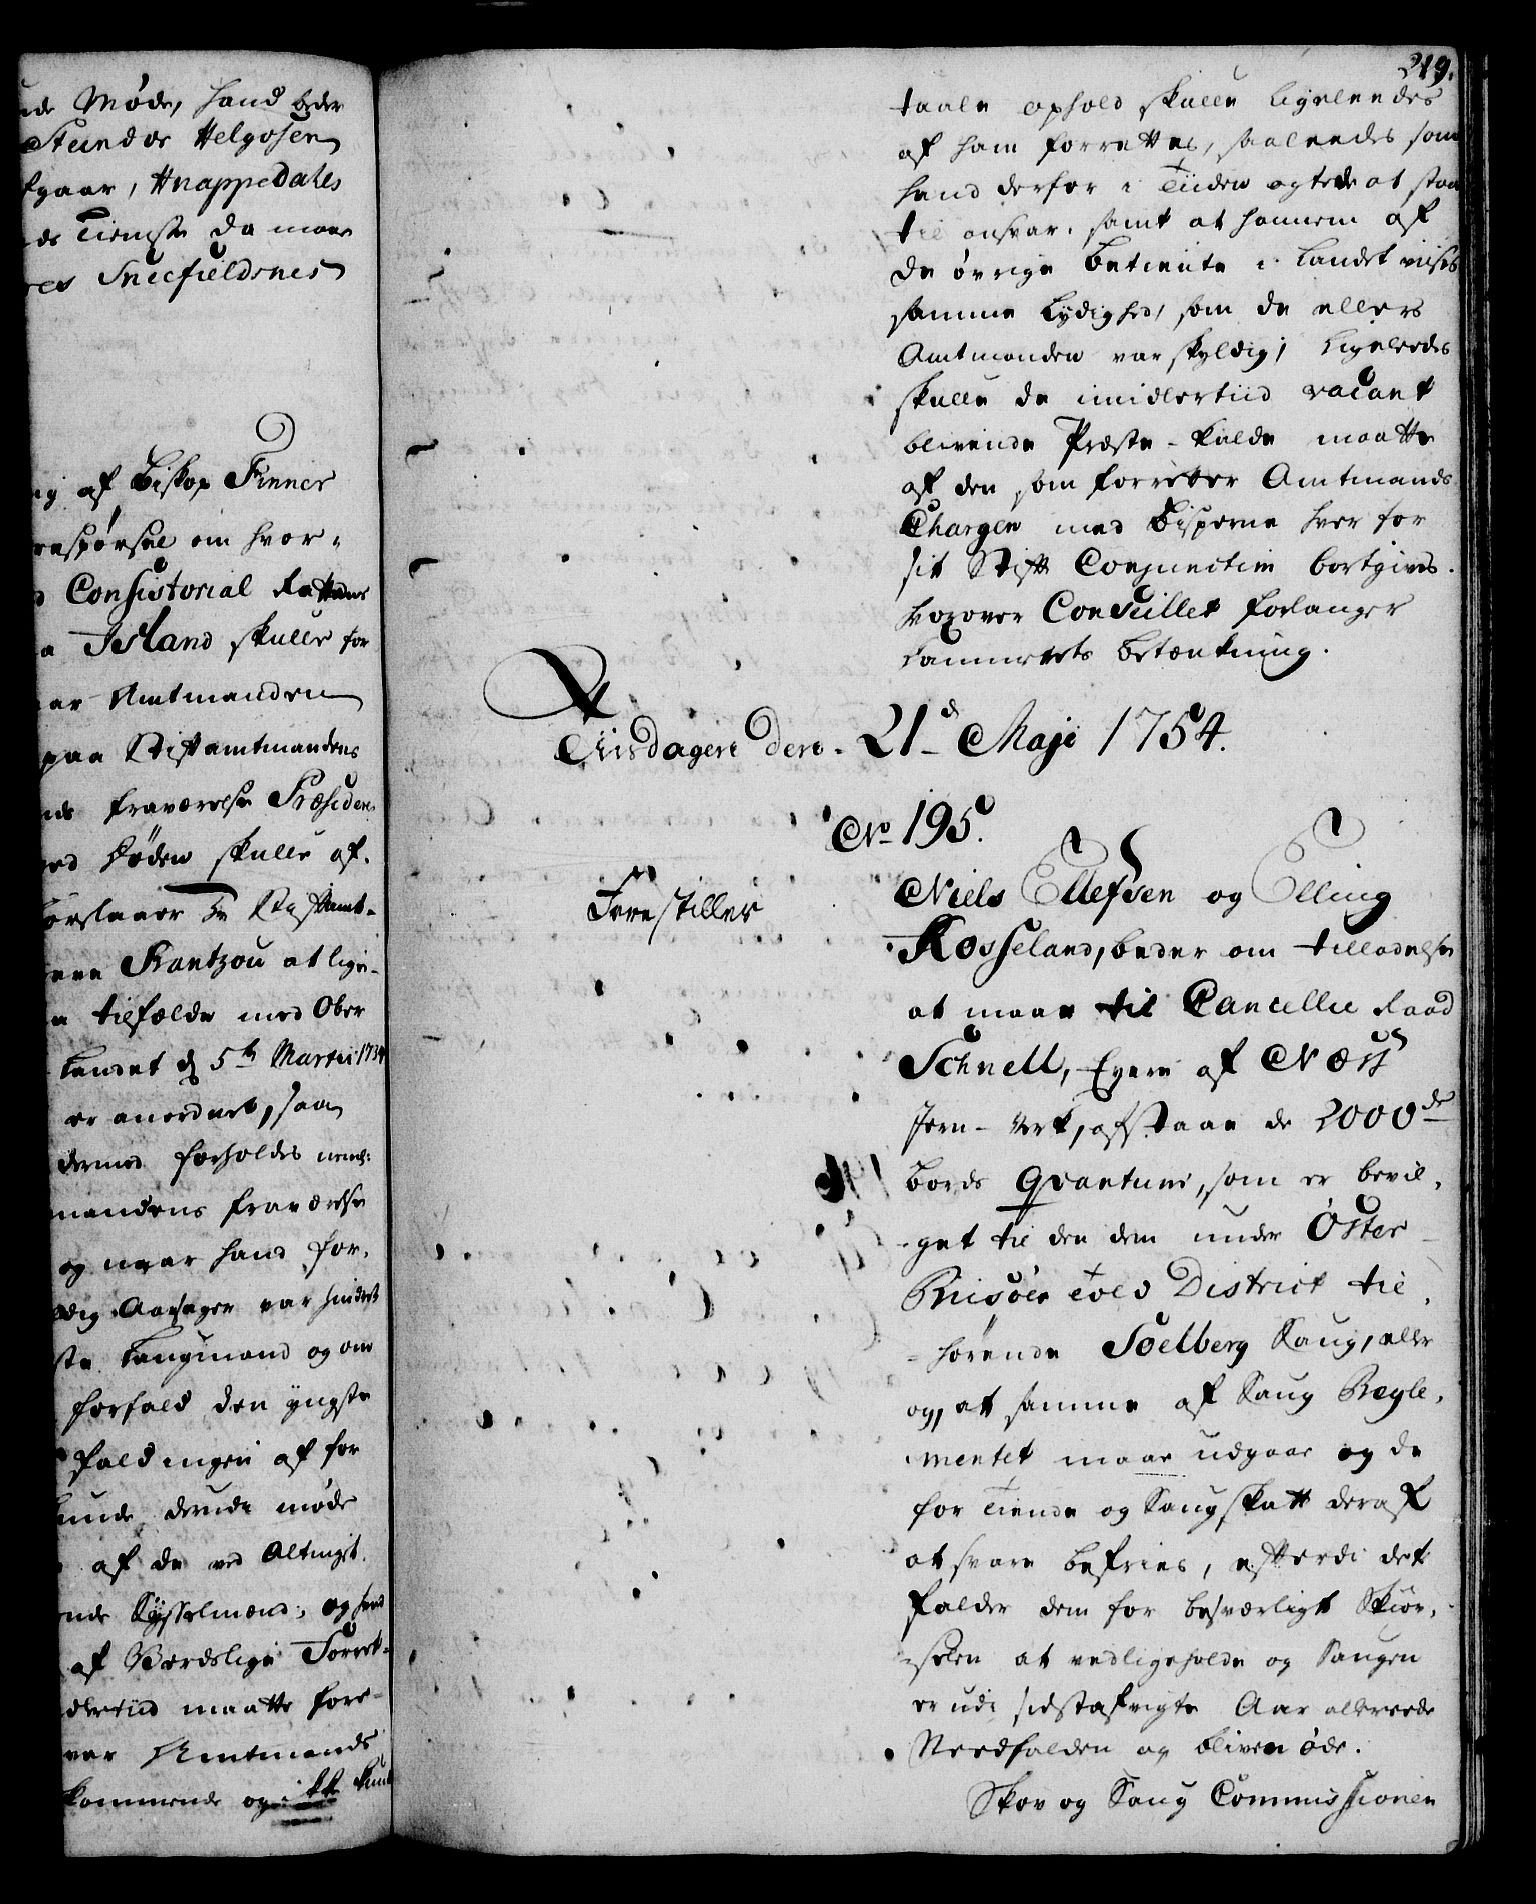 de Møde, hand beder
Steindor Helgesen
gaar, Hnappedahls
Tieniste da maae
Snefieldsnes
af Biskop Finner
respørsel om hvor-
Consistorial Retterne
Island skulle for
Amtmanden
paa Stiftamtmandens
fraværelse Præsidere
Døden skulle af-
forslaaer Hr Stiftamt-
Rantzou at lige-
tilfælde med Ober
Landet d 5te Martii 1734
er anordnet, saa
dermed forholdes neml:
mandens fraværelse
og naar hand for-
Aarsager var hindret
Laugmand og om
forfald den yngste
faldingen af for
kunde derude møde
af de ved Altinget
Sysselmænd; og hvad
af Verdslige Forret-
imidlertiid maatte fore-
Amtmands
kommende og
219.
taale ophold skulle ligeleedes
af ham forrettes, saaleedes som
hand derfor i Tiiden agtede at staa
til ansvar, samt at hannem af
de øvrige betiente i Landet viises
samme Lydighed, som de ellers
Amtmanden var skyldig; Ligeleedes
skulle de imidlertiid vacant
blivende Præste-kalde maatte
af den som forretter Amtmands
Chargen med Bisperne hver for
sit Stift Conjunctim bortgives.
hvorover Conseillet forlanger
Cammerets betænkning.
Tiisdagen den 21de Maji 1754.
No 195.
Forestiller
Niels Ellefsen og Elling
Rosseland, beder om tilladelse
at maae til Cancellie Raad
Schnell, Eyere af Næss
Jern-Verk, afstaae de 2000de
bords Qvantum, som er bevil-
get til den dem under Øster-
Riisøer Told District til-
hørende Soelberg Saug, eller
og, at samme af Saug Regle-
mentet maae udgaae og de
for Tiende og Saugskatt deraf
at svare befries, efterdi det
falder dem for besværligt Skiør-
selen at vedligeholde og Saugen
er udi sidstafvigte Aar allereede
Needfalden og bleven øde.
Skov og Saug Commissionen